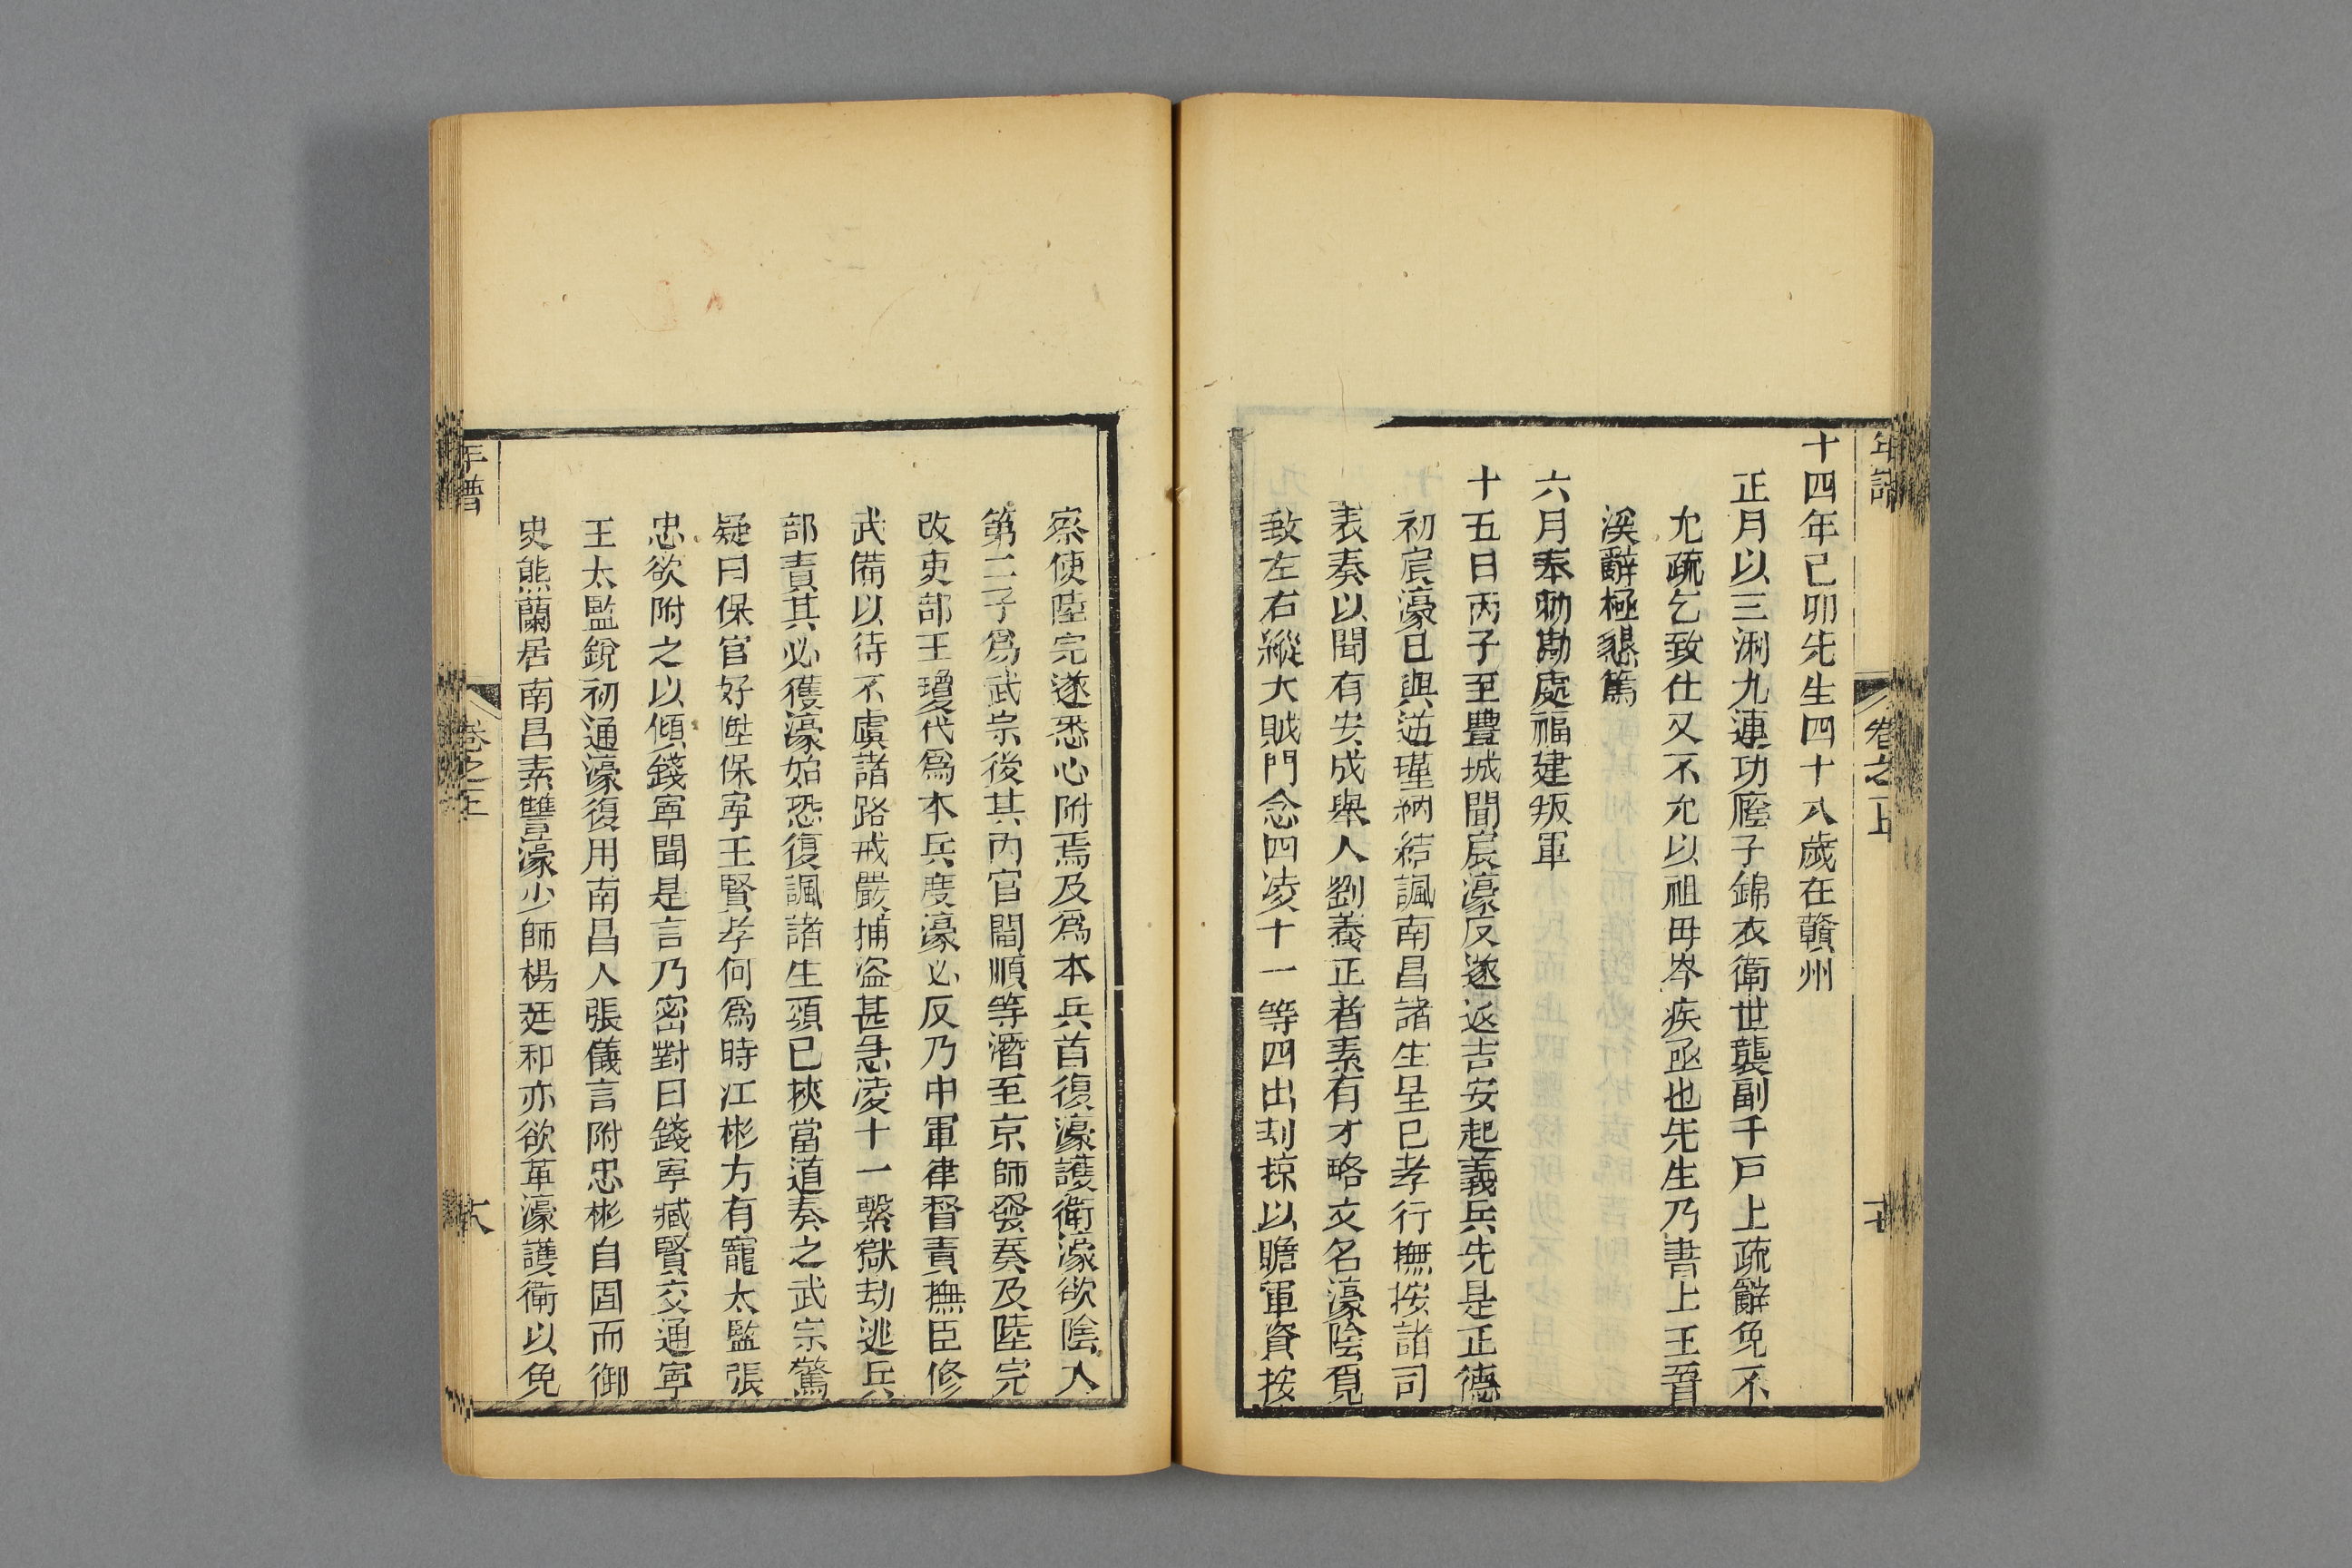 年譜 卷之上 十七
十四年己卯先生四十八歲在贛州
正月以三浰九連功廕子錦衣衛世襲副千戶上疏辭免不
允疏乞致仕又不允以祖母岑疾亟也先生乃書上王晉
溪辭極懇篤
六月奉勑勘處福建叛軍
十五日丙子至豐城聞宸濠反遂返吉安起義兵先是正德
初宸濠已與逆瑾納結諷南昌諸生呈已孝行撫按諸司
表奏以聞有安成舉人劉養正者素有才略文名濠陰覓
致左右縱大賊閔念四凌十一等四出刦掠以贍軍資按
察使陸完遂悉心附焉及爲本兵首復濠護衛濠欲陰入
第二子爲武宗後其內官閻順等潛至京師發奏及陸完
改吏部王瓊代爲本兵度濠必反乃申軍律督責撫臣修
武備以待不虞諸路戒嚴捕盜甚急凌十一繫獄劫逃兵
部責其必獲濠始恐復諷諸生頌已挾當道奏之武宗驚
疑曰保官好陞保寧王賢孝何爲時江彬方有寵太監張
忠欲附之以傾錢寧聞是言乃密對曰錢寧臧賢交通寧
王太監銳初通濠復用南昌人張儀言附忠彬自固而御
史熊蘭居南昌素讐濠少師楊廷和亦欲革濠護衛以免
年譜 卷之上 十八